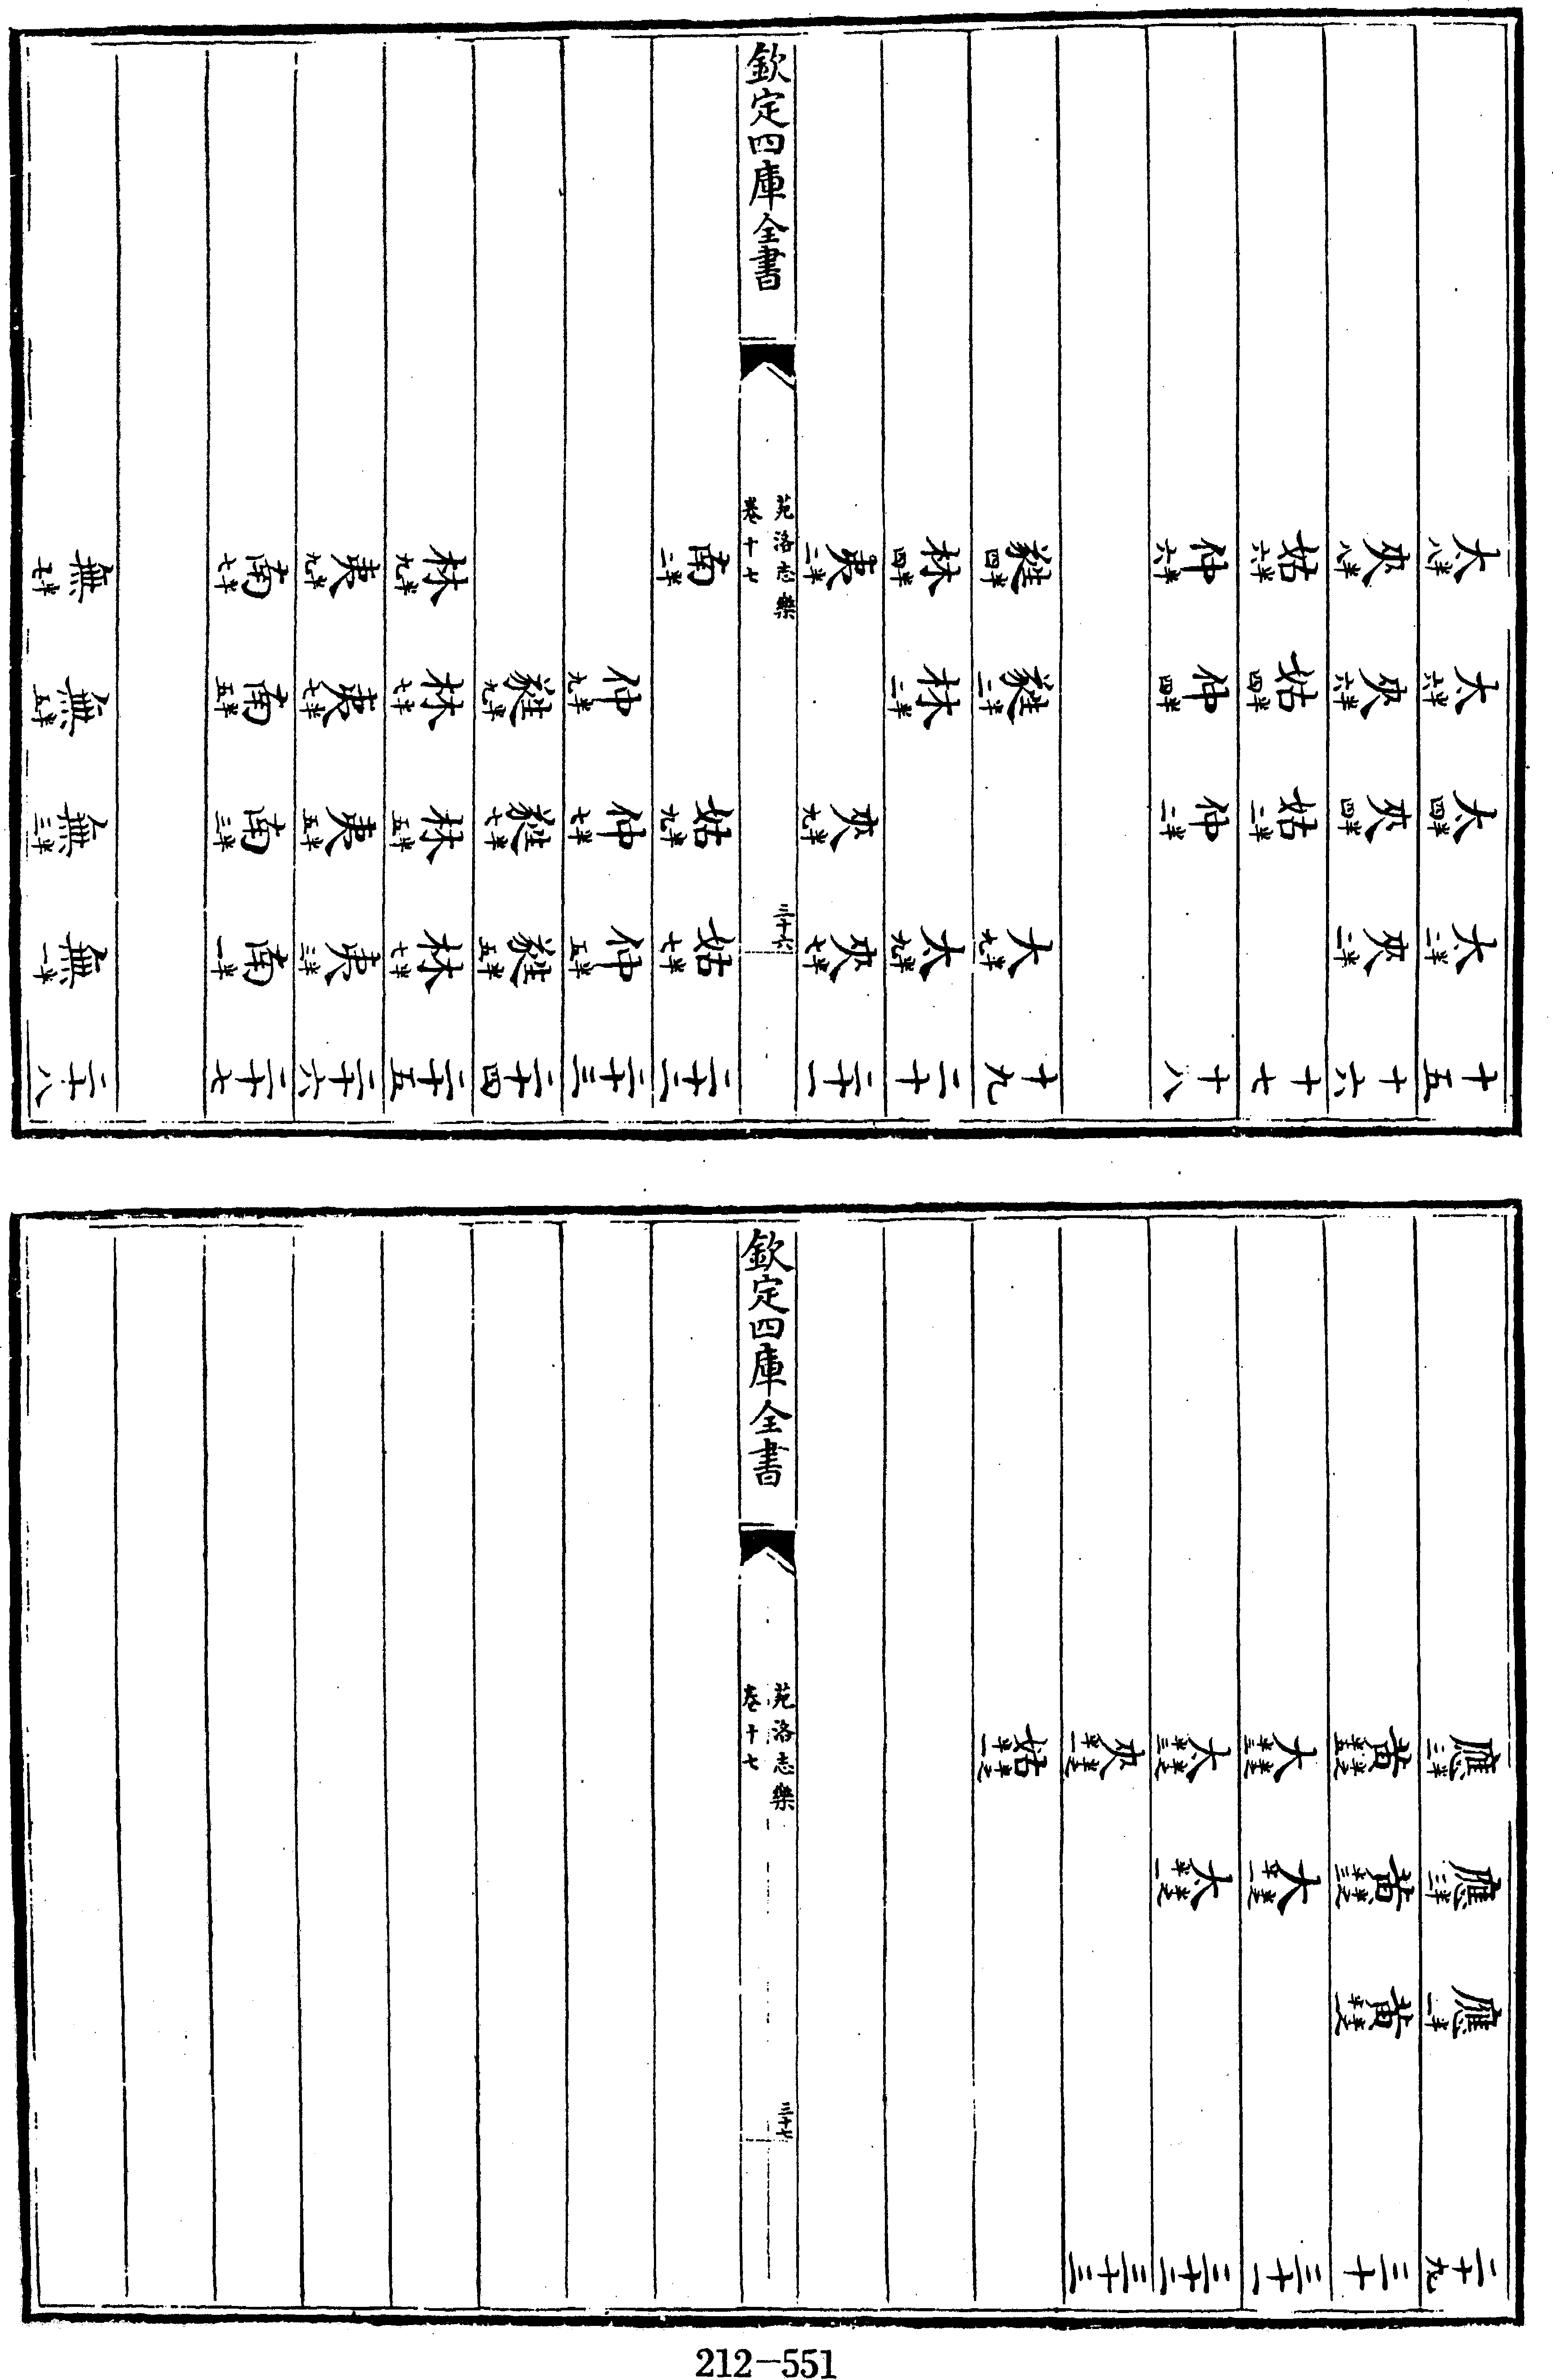 太八半 太六半 太四半 太二半 十五
夾八半 夾六半 夾四半 夾二半 十六
姑六半 姑四半 姑二半 十七
仲六半 仲四半 仲二半 十八
蕤四半 蕤二半 大九半 十九
林四半 林二半 太九半 二十
夷二半 夾九半 夾七半 二十一
欽定四庫全書
苑洛志樂
卷十七
三十六
南二半 姑九半 姑七半 二十二
仲九半 仲七半 仲五半 二十三
蕤九半 蕤七半 蕤五半 二十四
林九半 林七半 林五半 林七半 二十五
夷九半 夷七半 夷五半 夷三半 二十六
南七半 南五半 南三半 南一半 二十七
無七半 無五半 無三半 無一半 二十八
應三半 應三半 應一半 二十九
黃半之半五 黃半之半三 黃半之半一 三十
大半之半三 大半之半一 三十一
太半之半三 太半之半一 三十二
夾半之半一 三十三
姑半之半一
欽定四庫全書
苑洛志樂
卷十七
三十七
212-551